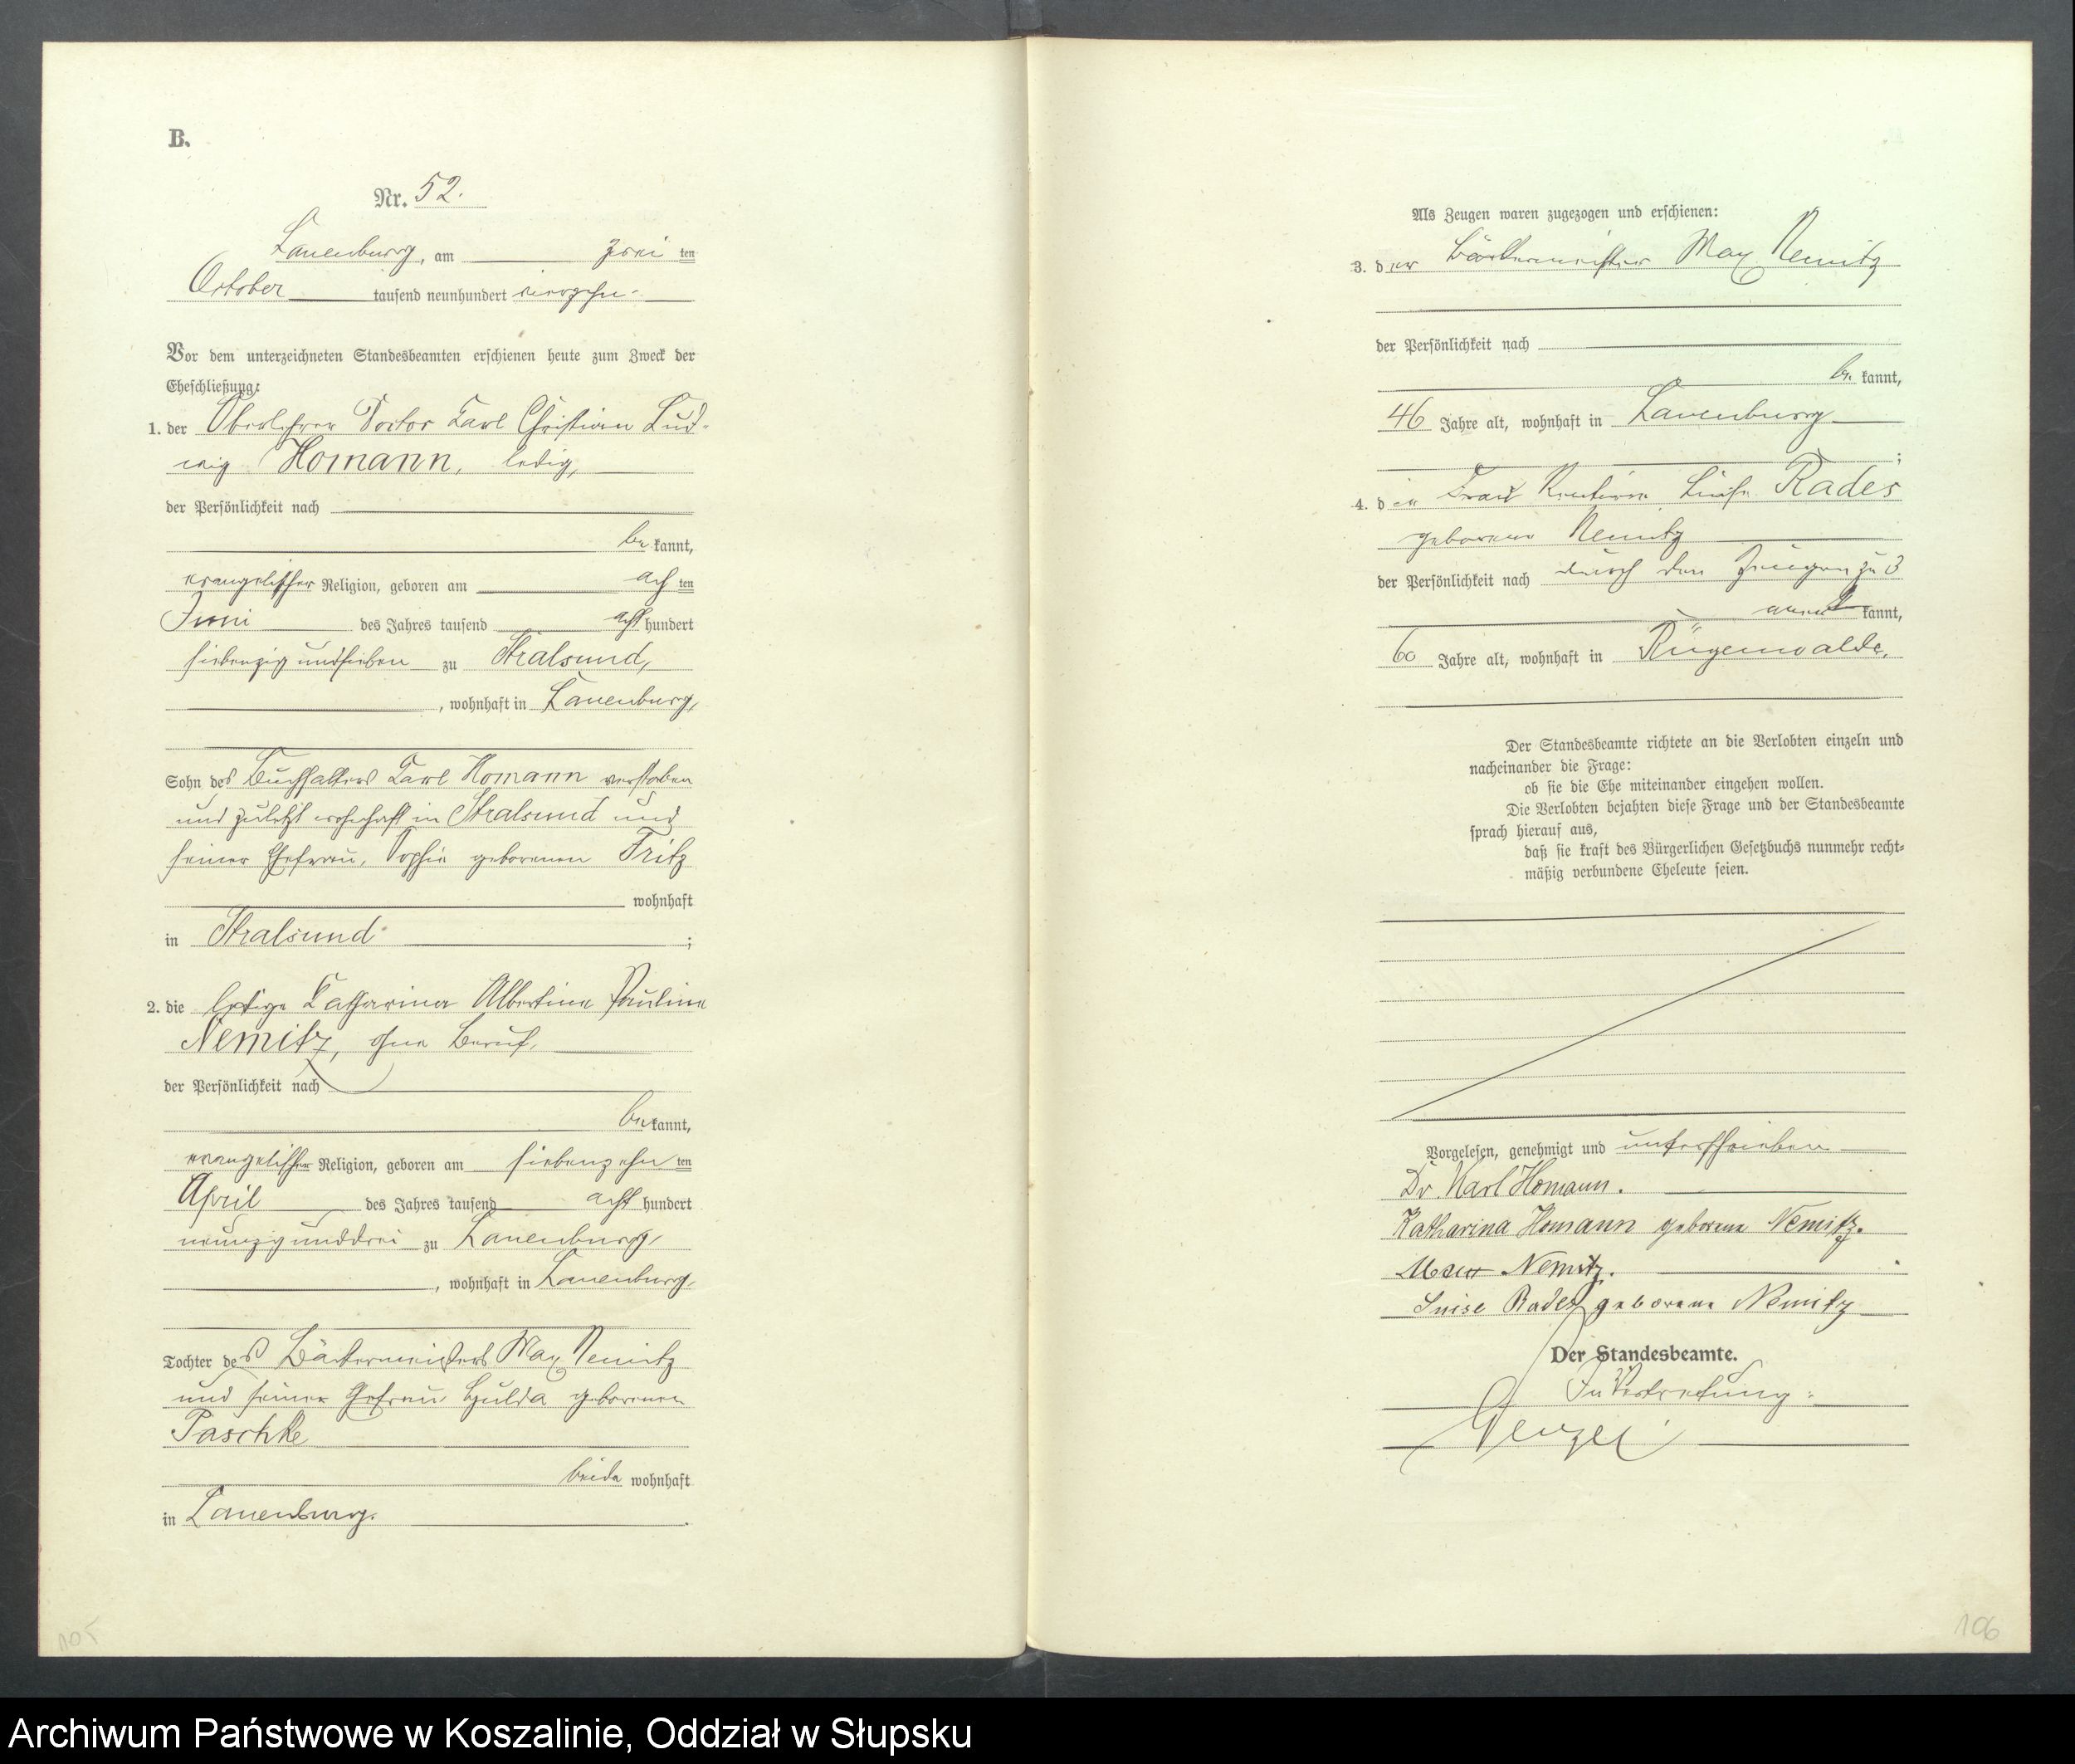 B.
Nr. 52.
Lauenburg, am zwei ten
October tausend neunhundert vierzehn.
Vor dem unterzeichneten Standesbeamten erschienen heute zum Zweck der
Eheschließung:
1. der Oberlehrer Doctor Carl Christian Lud-
wig Homann, ledig,
der Persönlichkeit nach
be kannt,
evangelischer Religion, geboren am ach ten
Juni des Jahres tausend acht hundert
siebenzig und sieben zu Stralsund,
, wohnhaft in Lauenburg,
Sohn des Buchhalters Carl Homann verstorben
und zuletzt wohnhaft in Stralsund und
seiner Ehefrau, Sophie geborenen Fritz
wohnhaft
in Stralsund ;
2. die ledige Catharina Albertine Pauline
Nemitz, ohne Beruf,
der Persönlichkeit nach
be kannt,
evangelischer Religion, geboren am siebenzehn ten
April des Jahres tausend acht hundert
neunzig und drei zu Lauenburg,
, wohnhaft in Lauenburg,
Tochter des Bäckermeisters Max Nemitz
und seiner Ehefrau Hulda geborenen
Paschke
beide wohnhaft
in Lauenburg.
105
Als Zeugen waren zugezogen und erschienen:
3. der Bäckermeister Max Nemitz
der Persönlichkeit nach
be kannt,
46 Jahre alt, wohnhaft in Lauenburg
;
4. die Frau Rentiere Luise Rades
geborene Nemitz
der Persönlichkeit nach durch den Zeugen zu 3
aner kannt,
60 Jahre alt, wohnhaft in Rügenwalde.
Der Standesbeamte richtete an die Verlobten einzeln und
nacheinander die Frage:
ob sie die Ehe miteinander eingehen wollen.
Die Verlobten bejahten diese Frage und der Standesbeamte
sprach hierauf aus,
daß sie kraft des Bürgerlichen Gesetzbuchs nunmehr recht-
mäßig verbundene Eheleute seien.
Vorgelesen, genehmigt und unterschrieben
Dr Karl Homann.
Katharina Homann geborene Nemitz.
Max Nemitz.
Luise Rades geborene Nemitz
Der Standesbeamte.
In Vertretung:
106
Archiwum Państwowe w Koszalinie, Oddział w Słupsku